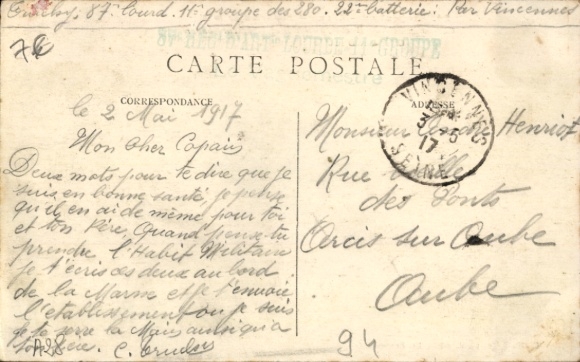 87e lourd. 11e groupe des 280. 22e batterie: Par Vincennes
7€
GROUPE
CARTE POSTALE
CORRESPONDANCE
ADRESSE
VINCENNES
17
SEINE
le 2 Mai 1917
Mon Cher Copain
Deux mots pour te dire que je
suis en bonne santé, je pense
qu'il en ai de même pour toi
et ton Père, Quand penx tu
prendre l'Habit Militaire
je t'écris ces deux au bord
de la Marne et je t'envoie
l'etablissement ou je suis
je te serre la Main ainsi qu'a
ton Père.
A28
Monsieur Henriot
Rue
des Ponts
Arcis sur Aube
Aube
94